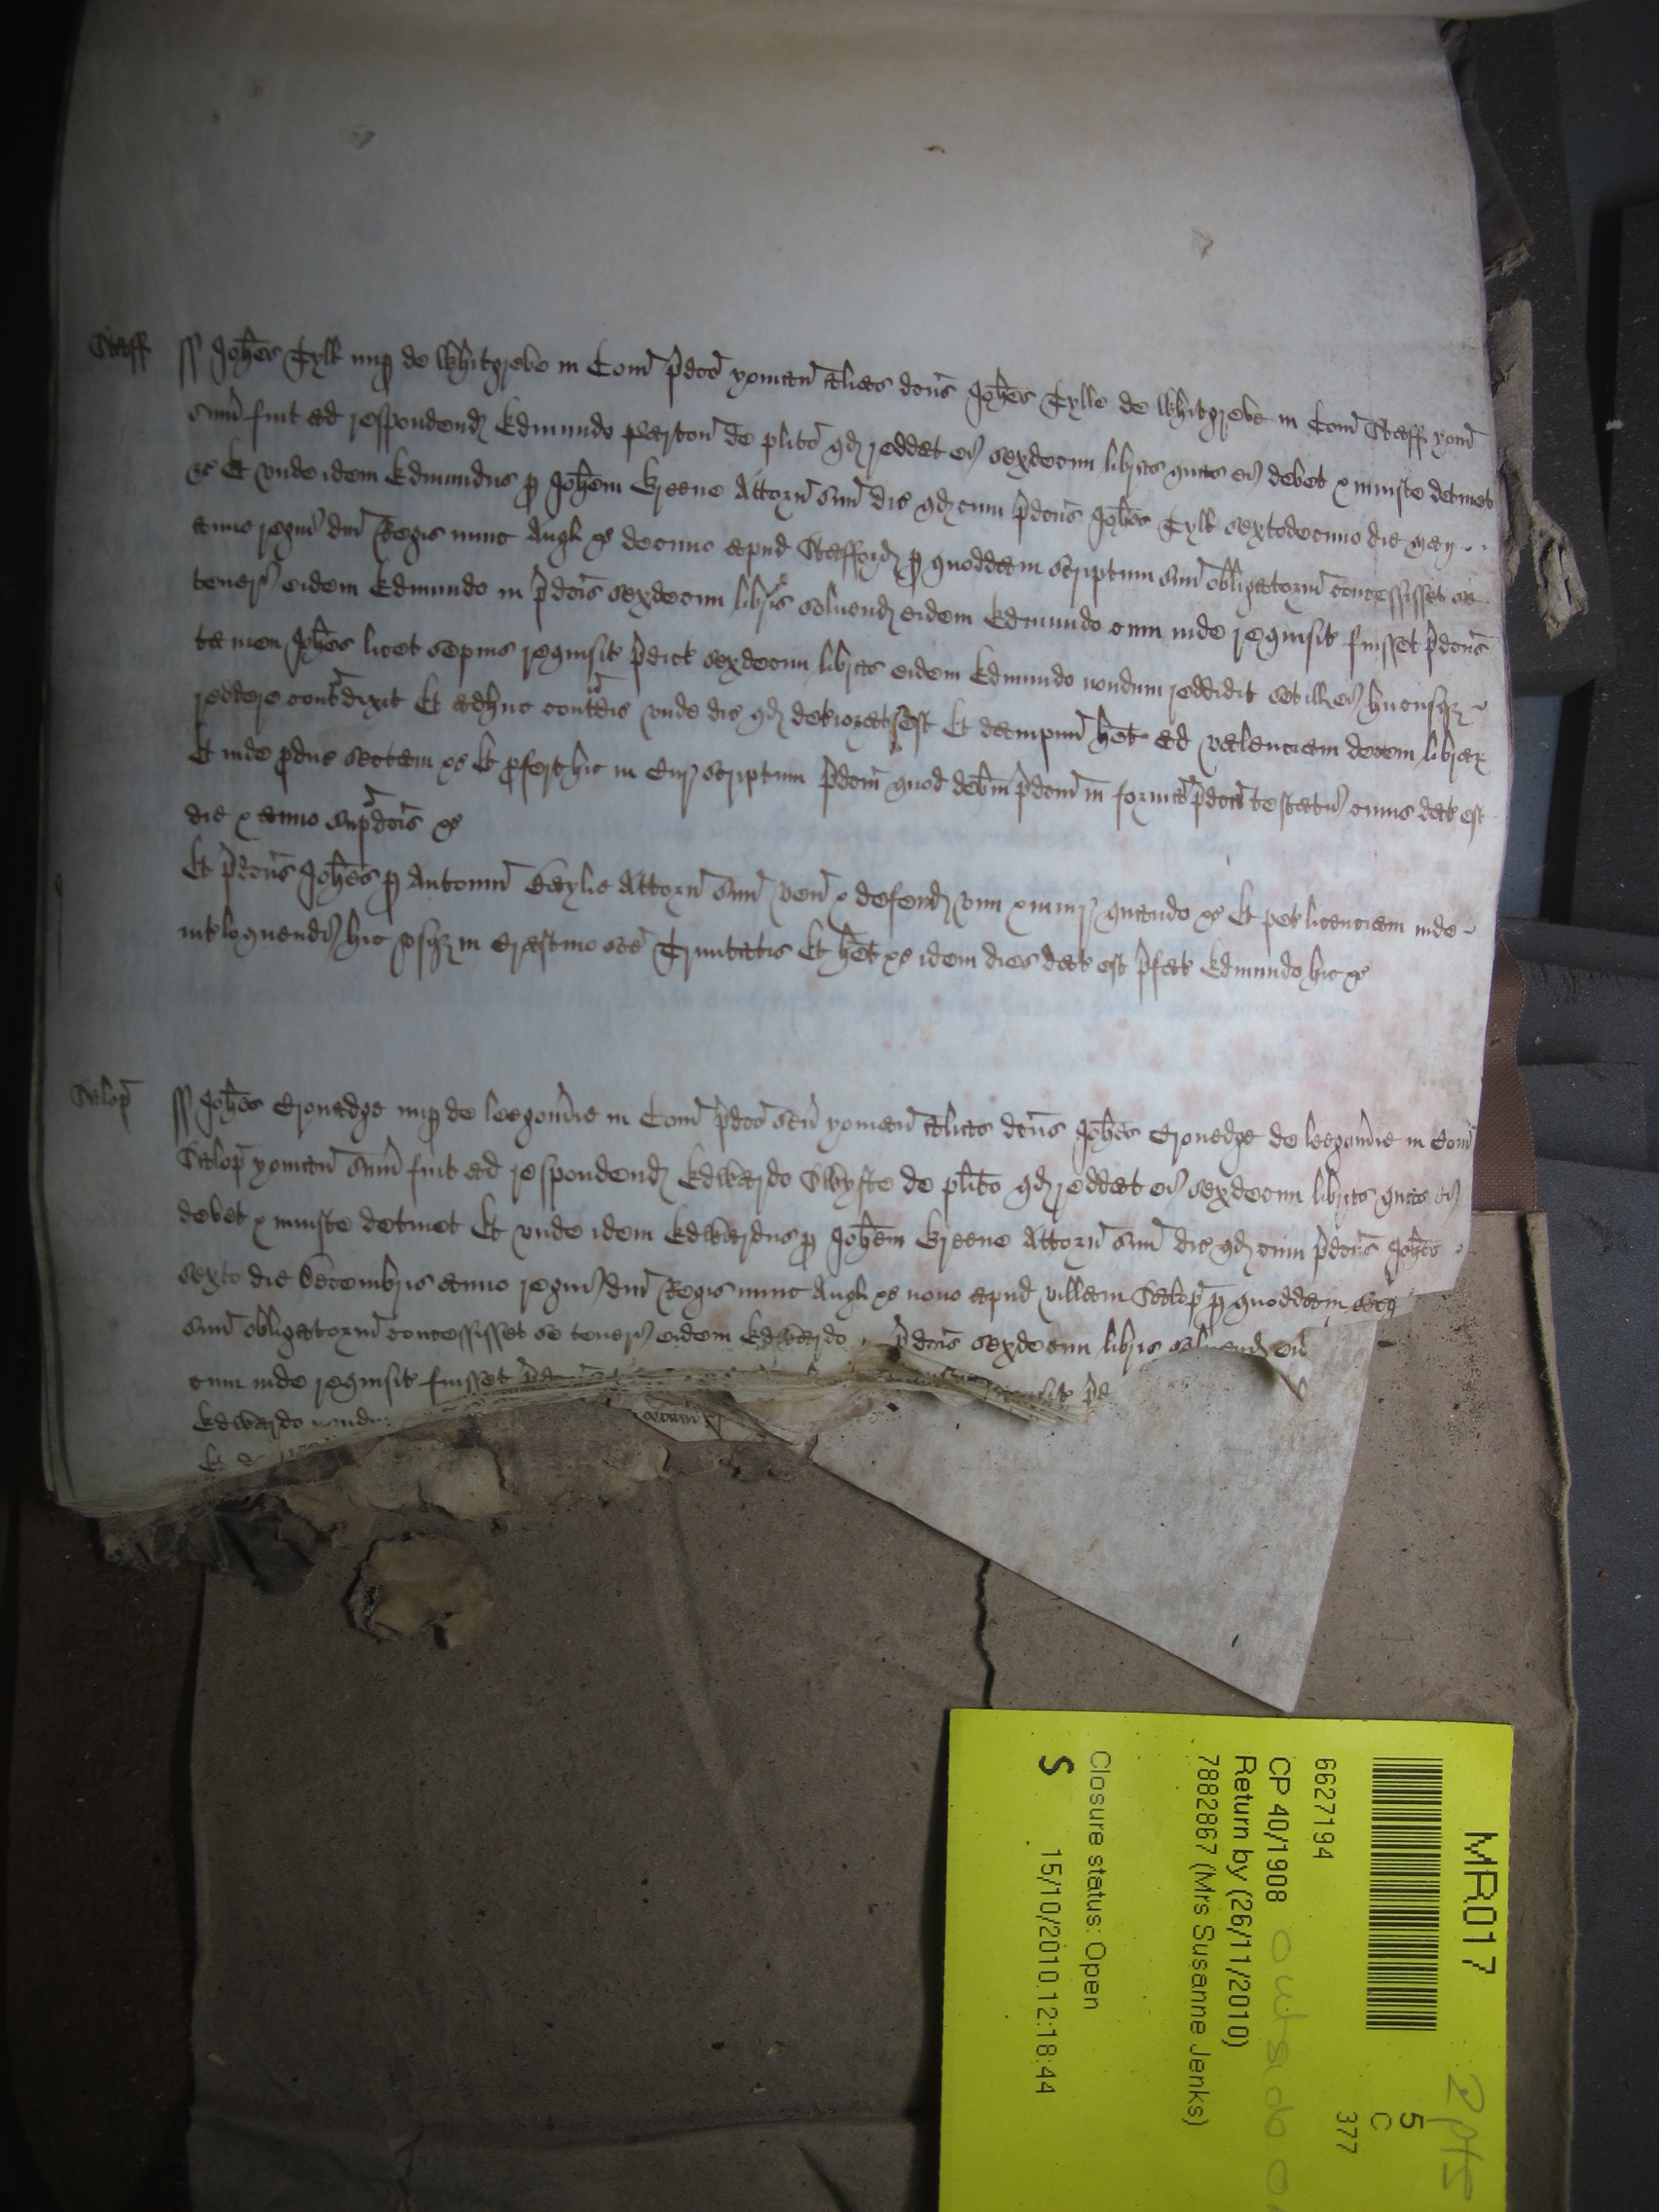 Staff ss Johes Tyll nup de Whitgreve in Com pdco yoman alias dcus Johes Tylle de Whitgreve in Com Staff yom
sum fuit ad respondend Edmundo de plito qd reddat ei sexdecim libras quas ei debet & iniuste detinet
&c Et unde idem Edmundus p Johem Grene Attorn suu dic qd cum pdcus Johes Tyll sextodecimo die
anno regni dni Regis nunc Angl &c decimo apud Stafford p quoddam scriptum suu obligatoriu concessisset se
teneri eidem Edmundo in pdcis sexdecim libris solvend eidem Edmundo cum inde requisit fuisset pdcus
tamen Johes licet sepius requisit pdict sexdecim libras eidem Edmundo nondum reddidit set ill ei hucusqz
reddere contradixit Et adhuc contradic unde dic qd deteriorat est Et dampnu het ad valenciam decem librar
Et inde pduc sectam &c Et pfert hic in Cur scriptum pdcm quod debm pdcm in forma pdca testatur cuius dat est
die & anno supdcis &c
Et pdcus Johes p Antoniu Attorn suu ven & defend vim & iniur quando &c Et pet licenciam inde
intloquendi hic usqz in crastino sce Trinitatis Et het &c idem dies dat est pfat Edmundo hic &c
Salop ss Johes nup de in Com pdco yoman alias dcus Johes de in Com
Salop yoman sum fuit ad respondend Edwardo de plito qd reddat ei sexdecim libras quas ei
debet & iniuste detinet Et unde idem Edwardus p Johem Grene Attorn suu dic qd cum pdcus Johes
sexto die Decembris anno regni dni Regis nunc Angl &c nono apud villam Salop p quoddam
suu obligatoriu concessisset se teneri eidem Edwardo pdcis sexdecim libris solvend ei
cum inde requisit fuisset
Edwardo
Et
MR017
2 pts
5
C
377
6627194
CP 40/1908
Return by (26/11/2010)
7882867 (Mrs Susanne Jenks)
Closure status: Open
S 15/10/2010 12:18:44